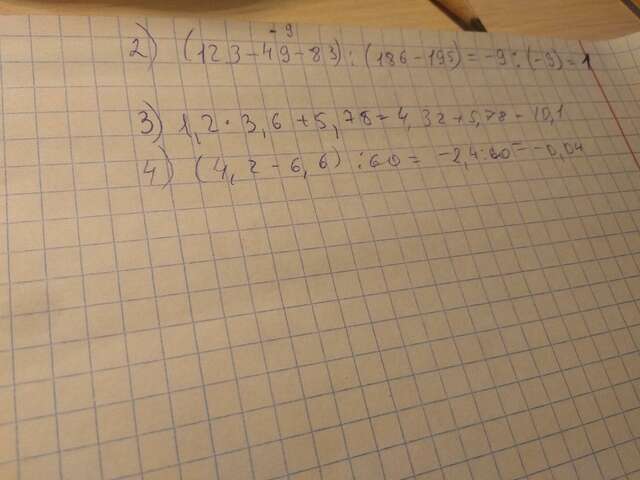 -9
2) (123-49-83):(186-195)=-9:(-9)=1
3) 1,2·3,6+5,78=4,32+5,78=10,1
4) (4,2-6,6):60=-2,4:60=-0,04